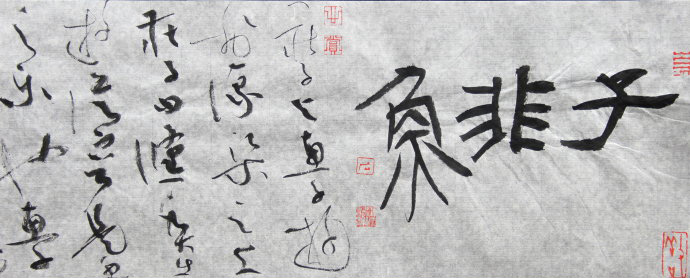 子非魚
莊子与惠子遊
於濠梁之上
莊子曰儵魚出
遊從容是魚
之樂也惠子